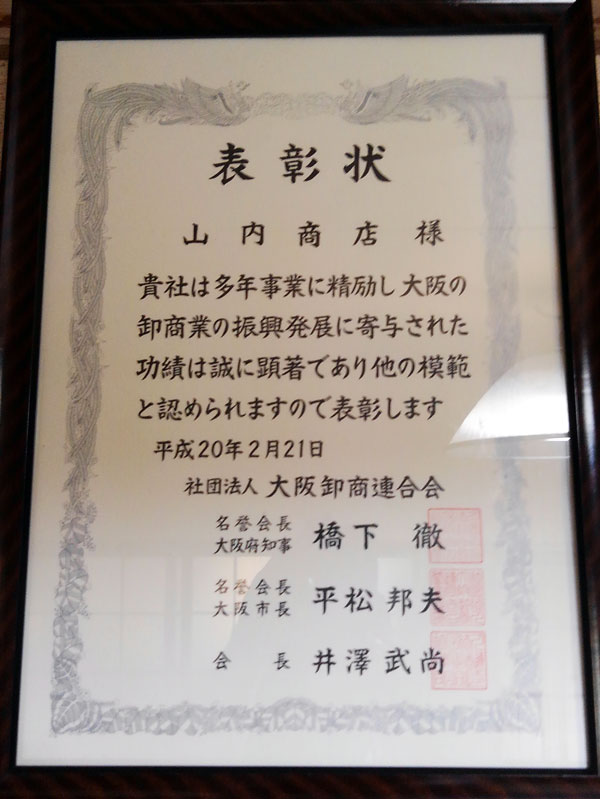 表彰状
山内商店様
貴社は多年事業に精励し大阪の
卸商業の振興発展に寄与された
功績は誠に顕著であり他の模範
と認められますので表彰します
平成20年2月21日
社団法人 大阪卸商連合会
名誉会長
大阪府知事 橋下 徹
名誉会長
大阪市長 平松邦夫
会長 井澤武尚